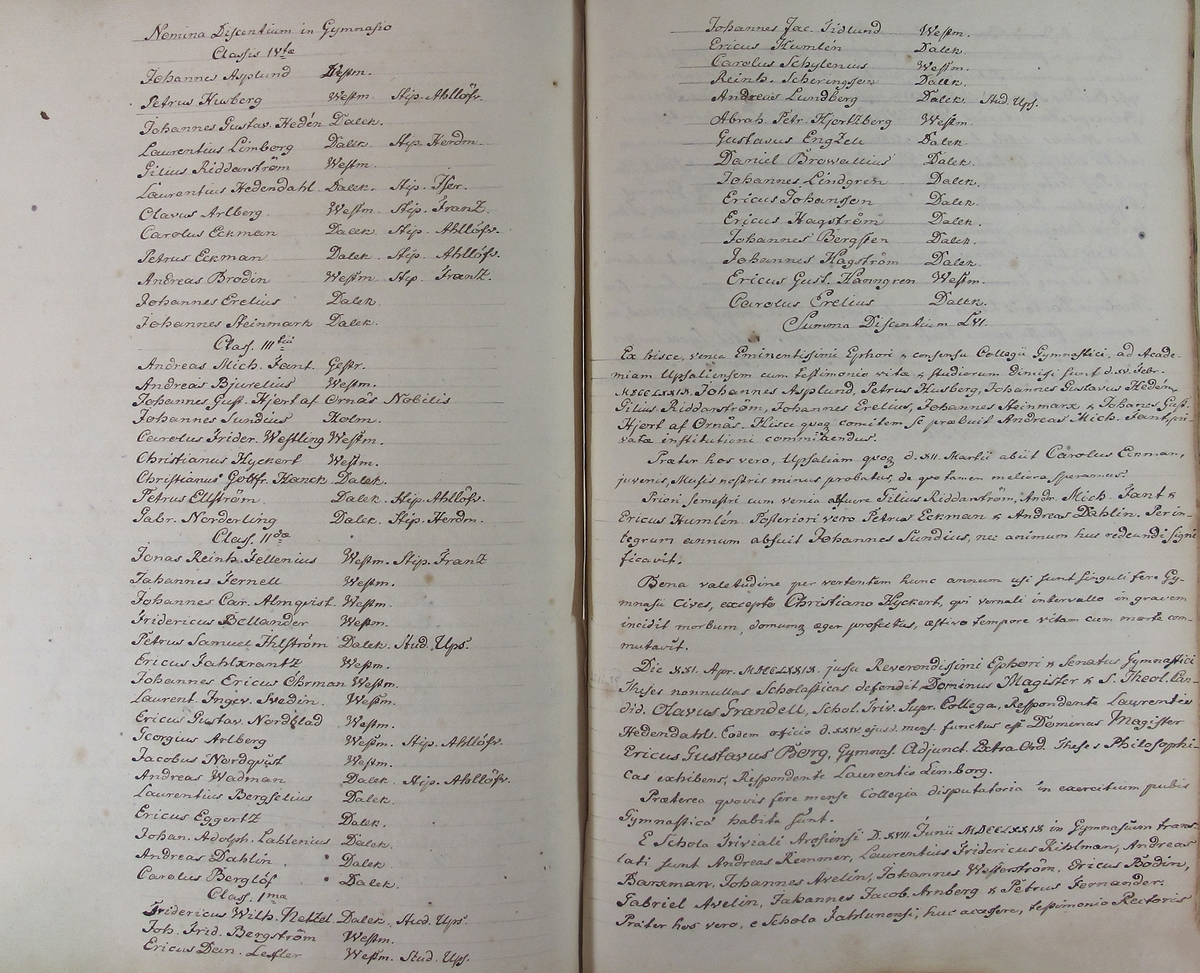 Nomina Discentium in Gymnasio
Classis IVtæ
Johannes Asplund Westm.
Petrus Husberg Westm. Stip. Ahllöfv.
Johannes Gustav. Hedén Dalek.
Laurentius Limborg Dalek. Stip. Herdm.
Gilius Ridderström Westm.
Laurentius Hedendahl Dalek. Stip. Iser.
Olavus Arlberg Westm. Stip. Franz.
Carolus Eckman Dalek. Stip. Ahllöfv.
Petrus Eckman Dalek. Stip. Ahllöfv.
Andreas Brodin Westm. Stip. Franz.
Johannes Erelius Dalek.
Johannes Steinmark Dalek.
Class. IIItii
Andreas Mich. Fant. Gestr.
Andreas Bjurelius Westm.
Johannes Gust. Hjort af Ornäs Nobilis
Johannes Sundius Holm.
Carolus Frider. Westling Westm.
Christianus Hyckert Westm.
Christianus Gottfr. Hanck Dalek.
Petrus Ellström Dalek. Stip. Ahllöfv.
Gabr. Norderling Dalek. Stip. Herdm.
Class. IIdæ
Jonas Reinh. Fellenius Westm. Stip. Franz
Johannes Fernell Westm.
Johannes Car. Almqvist Westm.
Fridericus Bellander Westm.
Petrus Samuel Ihlström Dalek. Stud. Ups.
Ericus Fahlkrantz Westm.
Johannes Ericus Ohrman Westm.
Laurent. Ingev. Svedin. Westm.
Ericus Gustav. Nordblad Westm.
Georgius Arlberg Westm. Stip. Ahllöfv.
Jacobus Nordqvist Westm.
Andreas Wadman Dalek. Stip. Ahllöfv.
Laurentius Bergselius Dalek.
Ericus Eggertz Dalek.
Johan. Adolph. Lahlenius Dalek.
Andreas Dahlin Dalek.
Carolus Berglöf Dalek.
Class. Ima
Fridericus Wilh. Netzel Dalek. Stud. Ups.
Joh. Frid. Bergström Westm.
Ericus Dan. Lefler Westm. Stud. Ups.
Johannes Jac. Tidlund Westm.
Ericus Humlén Dalek.
Carolus Schylenius Westm.
Reinh. Scheringson Dalek.
Andreas Lundberg Dalek. Stud. Ups.
Abrah. Petr. Hjortzberg Westm.
Gustavus Engzell Dalek
Daniel Browallius Dalek.
Johannes Lindgren Dalek.
Ericus Johanson Dalek.
Ericus Hagström Dalek.
Johannes Bergsten Dalek.
Johannes Hagström Dalek.
Ericus Gust. Hanngren Westm.
Carolus Erelius Dalek.
Summa Discentium LVI.
Ex hisce, venia Eminentissimi Ephori & consensu Collegii Gymnastici, ad Acade-
miam Upsaliensem cum testimonio vitæ & studiorum dimissi sunt d. XV. Febr.
MDCCLXXIX. Johannes Asplund, Petrus Husberg, Johannes Gustavus Hedén,
Gilius Ridderström, Johannes Erelius, Johannes Steinmark & Johanes Gust.
Hjort af Ornäs. Hisce quoq comitem se præbuit Andreas Mich. Fant, pri-
vatæ institutioni committendus.
Præter hos vero, Upsaliam quoq d. XII. Martii abiit Carolus Eckman,
juvenis, Musis nostris minus probatus, de quo tamen meliora speramus.
Priori semestri cum venia abfuere Gilius Ridderström, Andr. Mich. Fant &
Ericus Humlén. Posteriori vero Petrus Eckman & Andreas Dahlin. Per in-
tegrum annum abfuit Johannes Sundius, nec animum hus redeundi signi
ficavit.
Bona valetudine per vertentem hunc annum usi sunt singuli fere Gy-
mnasii Cives, excepto Christiano Hyckert, qui vernali intervallo in gravem
incidit morbum, domumq æger profectus, æstivo tempore vitam cum morte com-
mutavit.
Die XXI. Apr. MDCCLXXIX. jussu Reverendissimi Ephori & Senatus Gymnastici
Theses nonnullas Scholasticas defendit, Dominus Magister & S. Theol. Can-
did. Olavus Grandell, Schol. Triv. Supr. Collega, Respondente Laurentio
Hedendahl. Eodem officio d. XXIV. ejusd. mens. functus est Dominus Magister
Ericus Gustavus Borg, Gymnas. Adjunct. Extra Ord. Theses Philosophi-
cas exhibens, Respondente Laurentio Limborg.
Præterea quovis fere mense Collegia disputatoria in exercitium pubis
Gymnasticæ habita sunt.
E Schola Triviali Arosiensi D. XVII Junii MDCCLXXIX in Gymnasium trans
lati sunt Andreas Remmer, Laurentius Fridericus Kihlman, Andreas
Barkman, Johannes Avelin, Johannes Westerström, Ericus Bodin,
Gabriel Avelin, Johannes Jacob. Arnberg & Petrus Fernander.
Præter hos vero, e Schola Fahlunensi, huc accessere, testimonio Rectoris